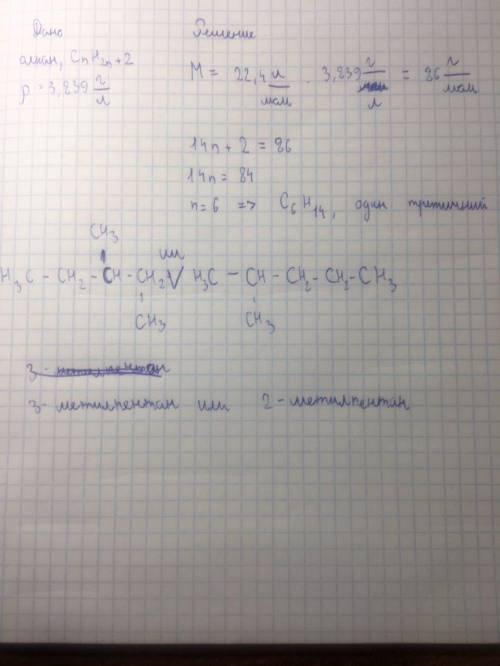 Дано
Решение
алкан, CnH2n+2
ρ = 3,839 г/л
M = 22,4 л/моль · 3,839 г/л = 86 г/моль
14n + 2 = 86
14n = 84
n = 6 => C6H14, один третичный
CH3
или
H3C - CH2 - CH - CH2 V H3C - CH - CH2 - CH2 - CH3
CH3 CH3
3-метилпентан
3-метилпентан или 2-метилпентан